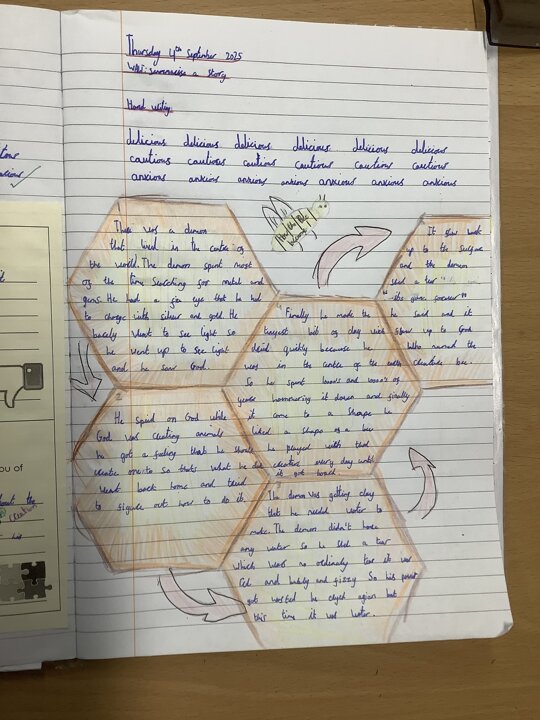 Thursday 4th September 2025
WALT: summarise a story
Hand writing
delicious delicious delicious delicious delicious delicious
cautious cautious cautious cautious cautious cautious
anxious anxious anxious anxious anxious anxious anxious
There was a demon
that lived in the centre of
the world. The demon spent most
of the time serching for metal and
gems. He had a fire eye that he had
to charge with silver and gold. He
barely went to see light so
he went up to see light
and he saw God.
2
He spied on God while
God was creating animals
he got a feeling that he should
create one to so thats what he did
went back home and tried
to figure out how to do it.
The demon was getting clay
that he needed water to
make. The demon didn't have
any water so he shed a tear
which was no ordinary tear it was
red and bubbly and fizzy so his
got wasted he cryed agian but
this time it was water.
Finally he made the
tinyest bit of clay wich
dried quickly because he
was in the centre of the earth
So he spent hours and hours of
years hammering it down and finally
it come to a shape he
liked a shape of a bee
he played with that
creature every day until
it got bored.
It flew back
up to the surface
and the demon
shed a tear
he said and it
flew up to God
who named the
creature bee.